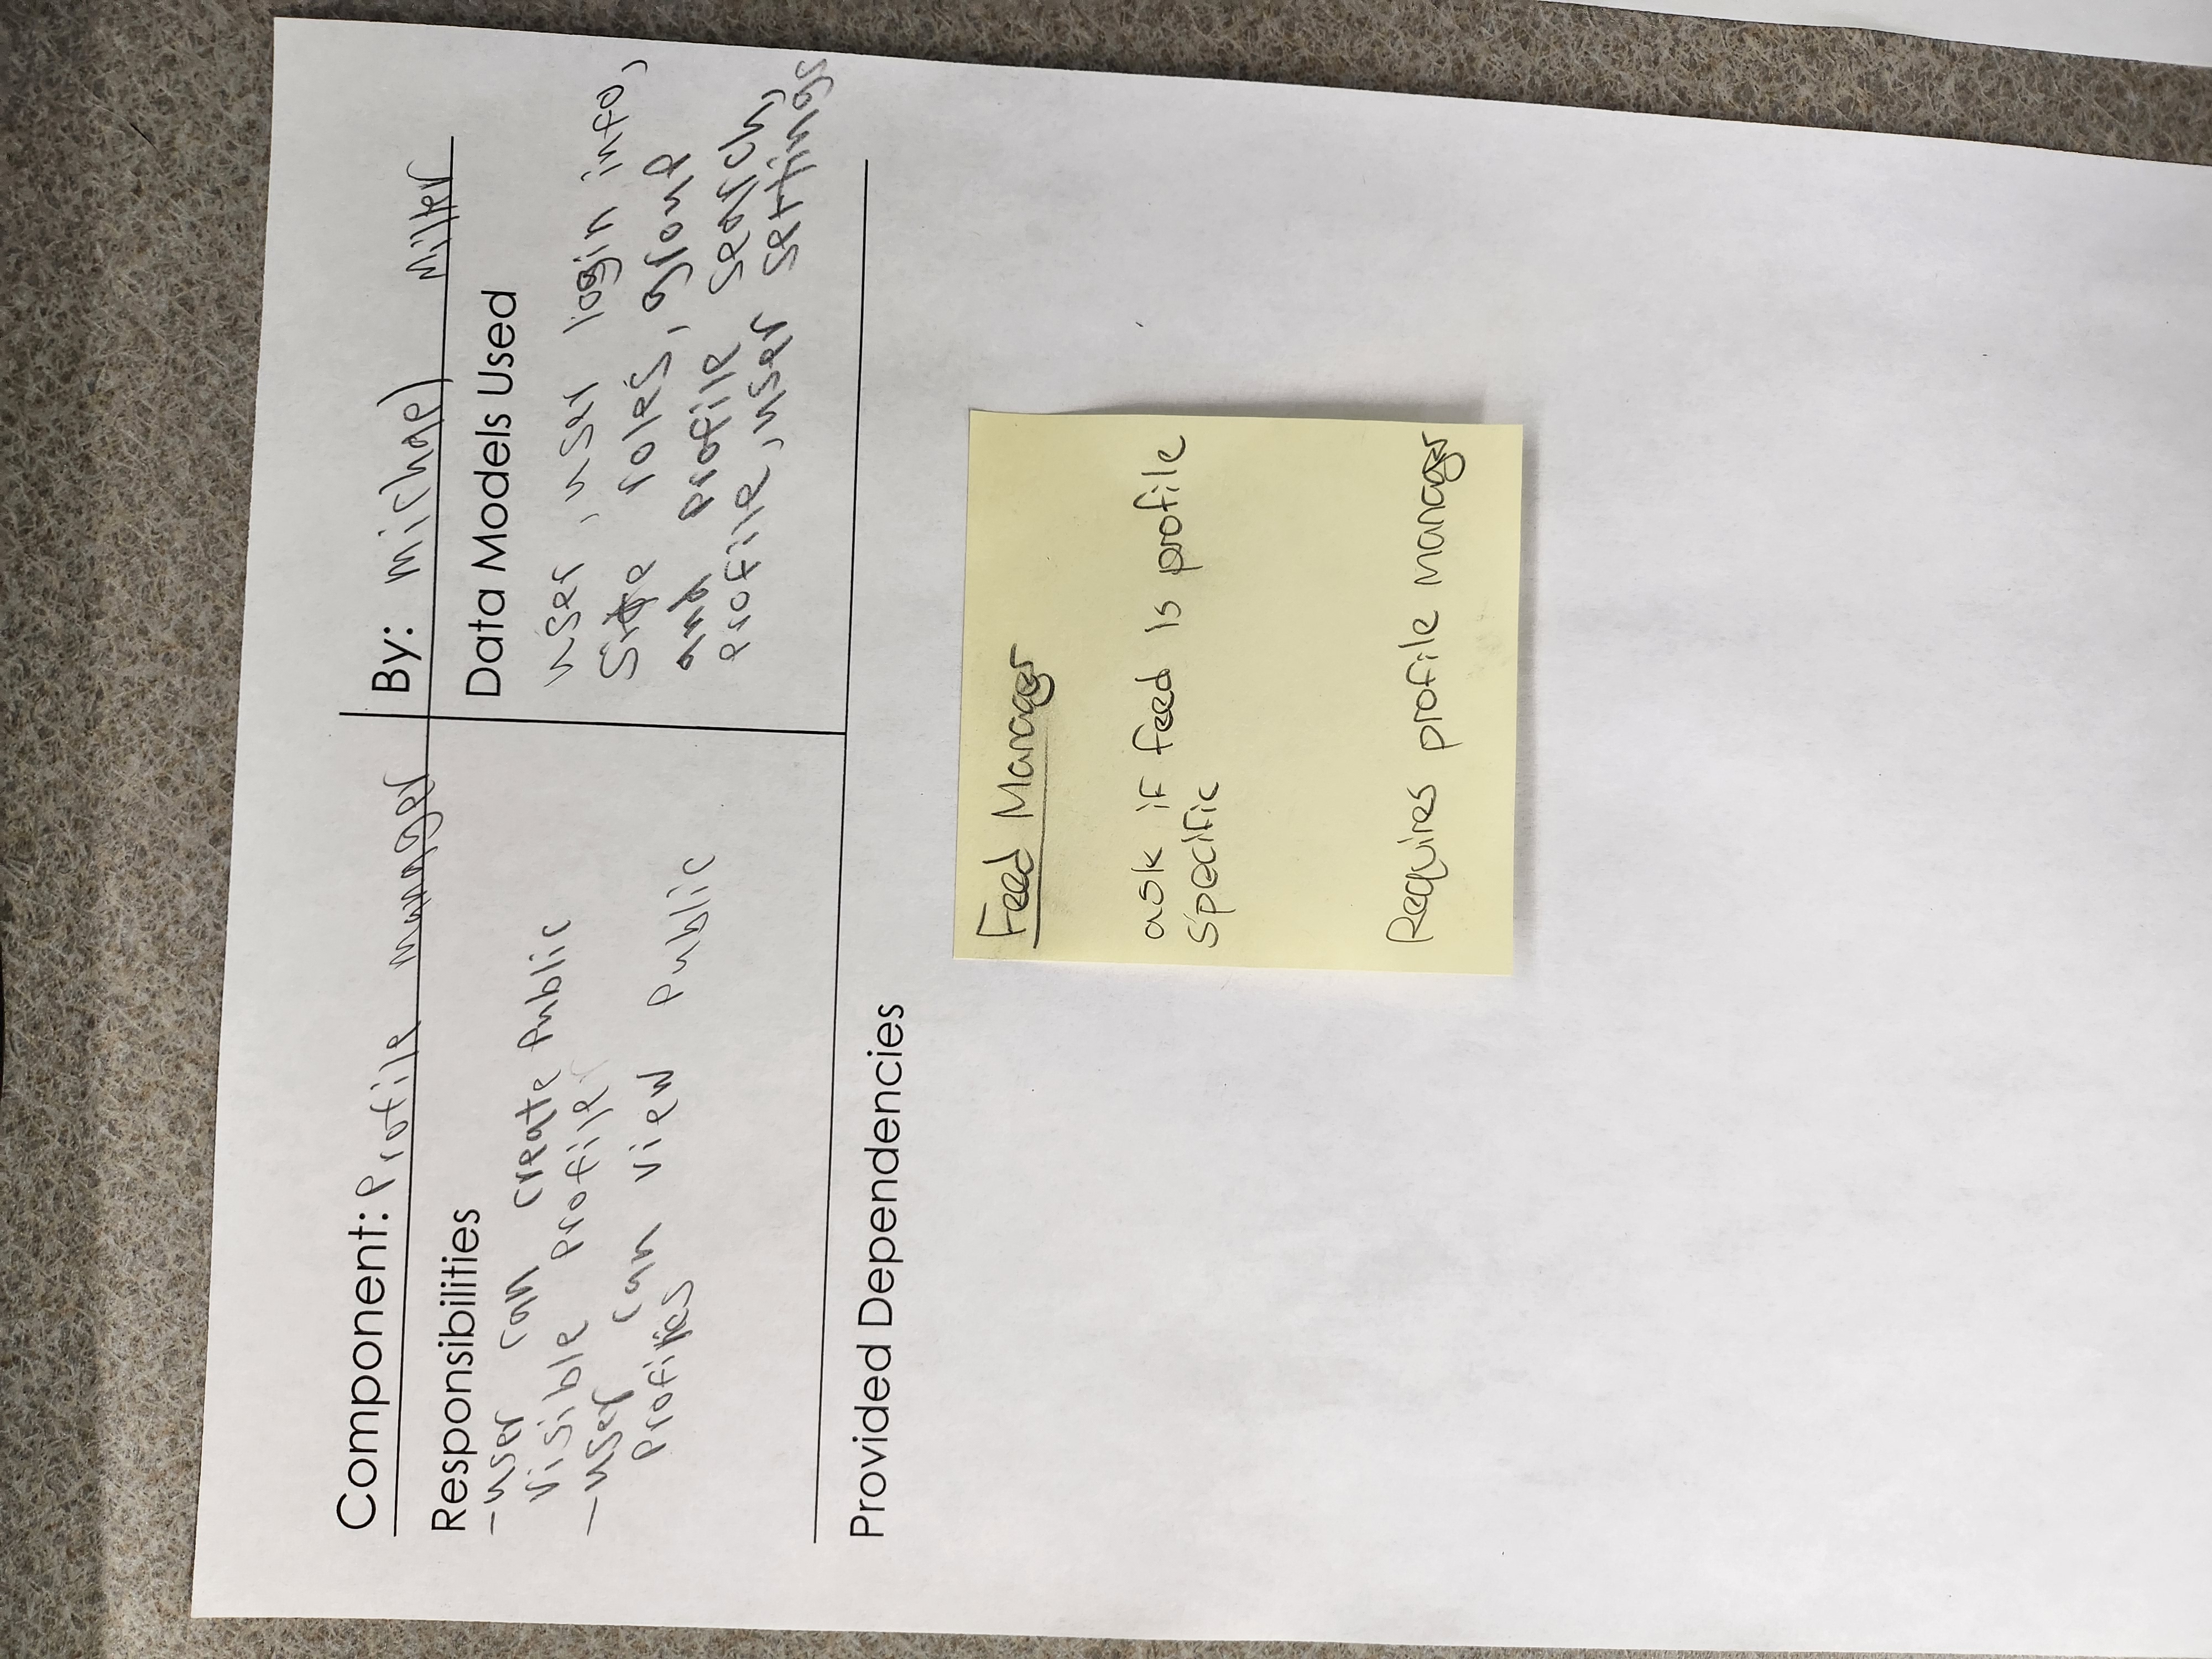 Component: Profile manager
By: Michael Miller
Responsibilities
-user can create Public
visible Profile
-user can view Public
Profiles
Data Models Used
user, user login info,
Site roles, group
and profile search,
profile, user settings
Provided Dependencies
Feed Manager
ask if feed is profile
specific
Requires profile manager